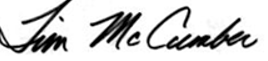 Jim McCumber